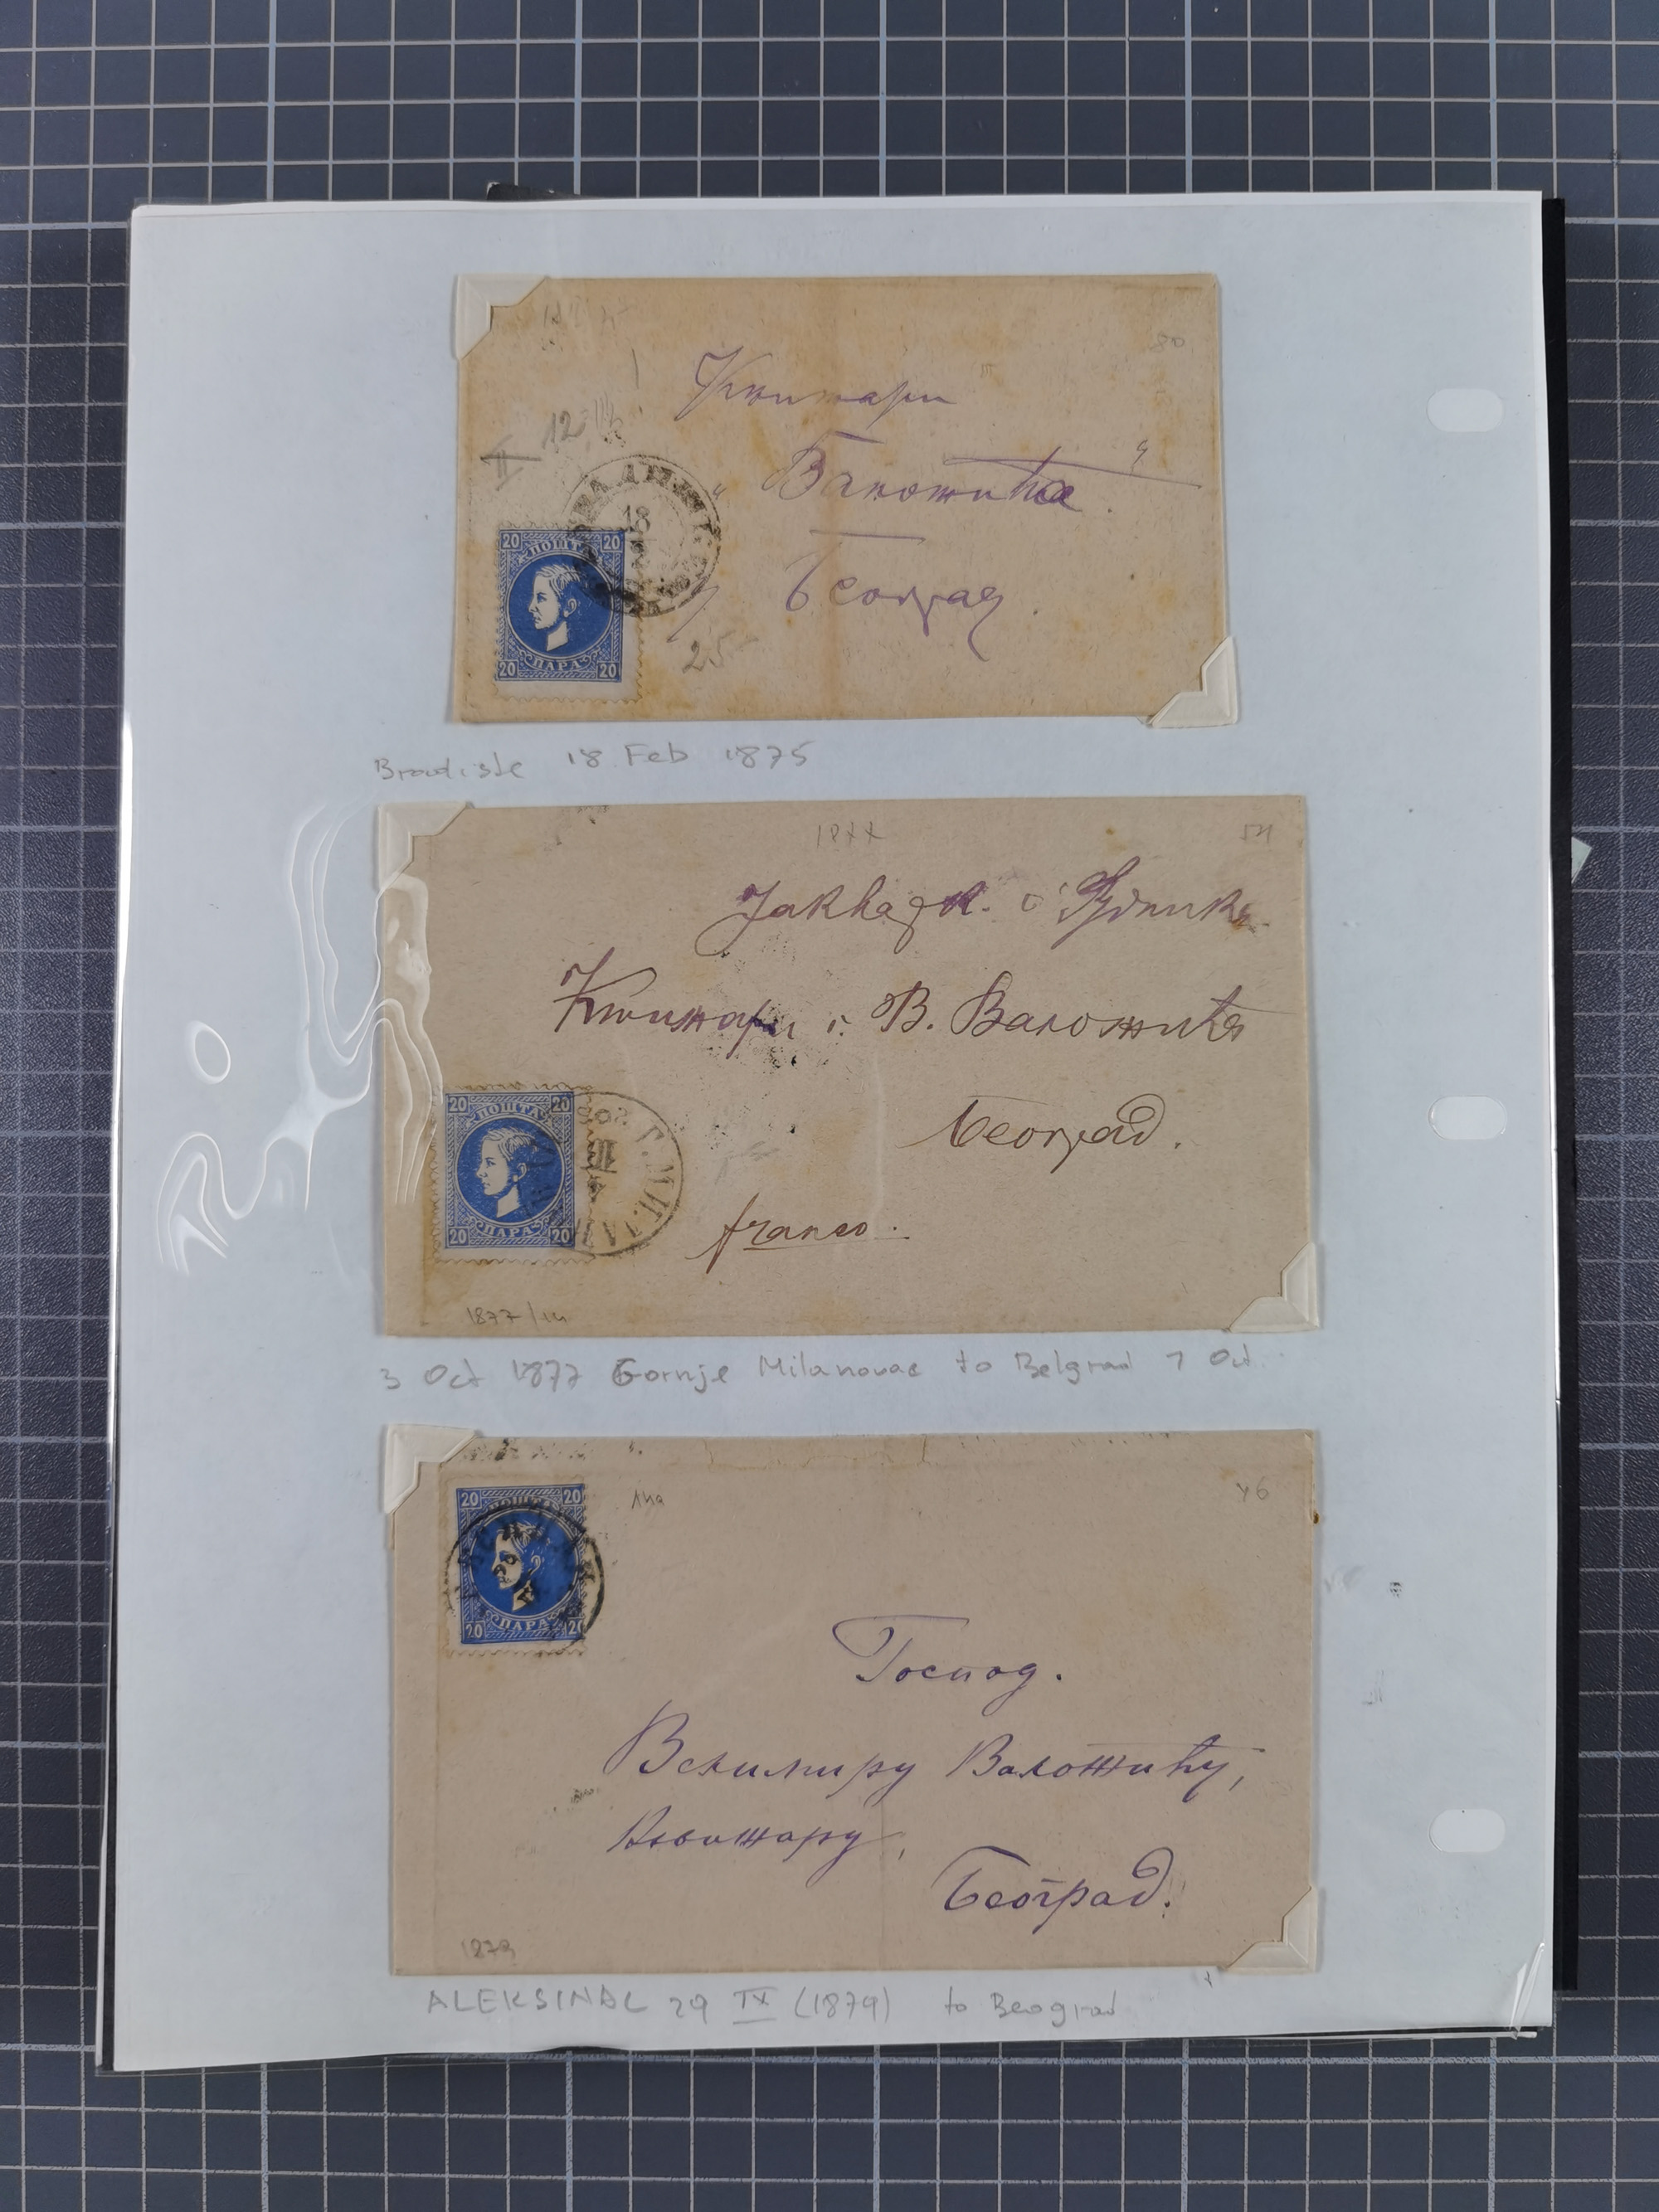 80
12
Књижари
„Валожића“
Београд.
18
20 ПОШТА 20
20 ПАРА 20
25
18 Feb 1875
1877
Књижари г. В. Валожића
Београд.
20 ПОШТА 20
20 ПАРА 20
Г. МИЛА
franco.
1877/14
3 Oct 1877 Gornje Milanovac to Belgrad 7 Oct.
20 ПОШТА 20
20 ПАРА 20
46
Господ.
Велимиру Валожићу,
Књижару,
Београд.
1879
ALEKSINAC 29 IX (1879) to Beograd